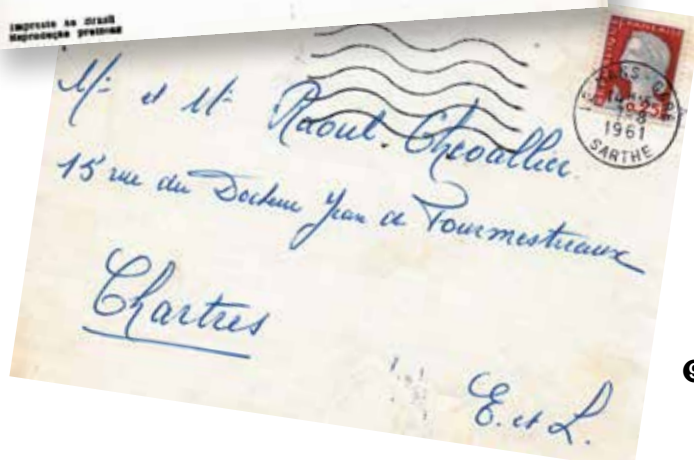 Impresso no Brasil
Reprodução proibida
FRANÇAISE
0,25
GARE
14H
8
1961
SARTHE
Mr et Me Raoul Chevallier
15 rue du Docteur Jean de Fourmestraux
Chartres
E. et L.
9